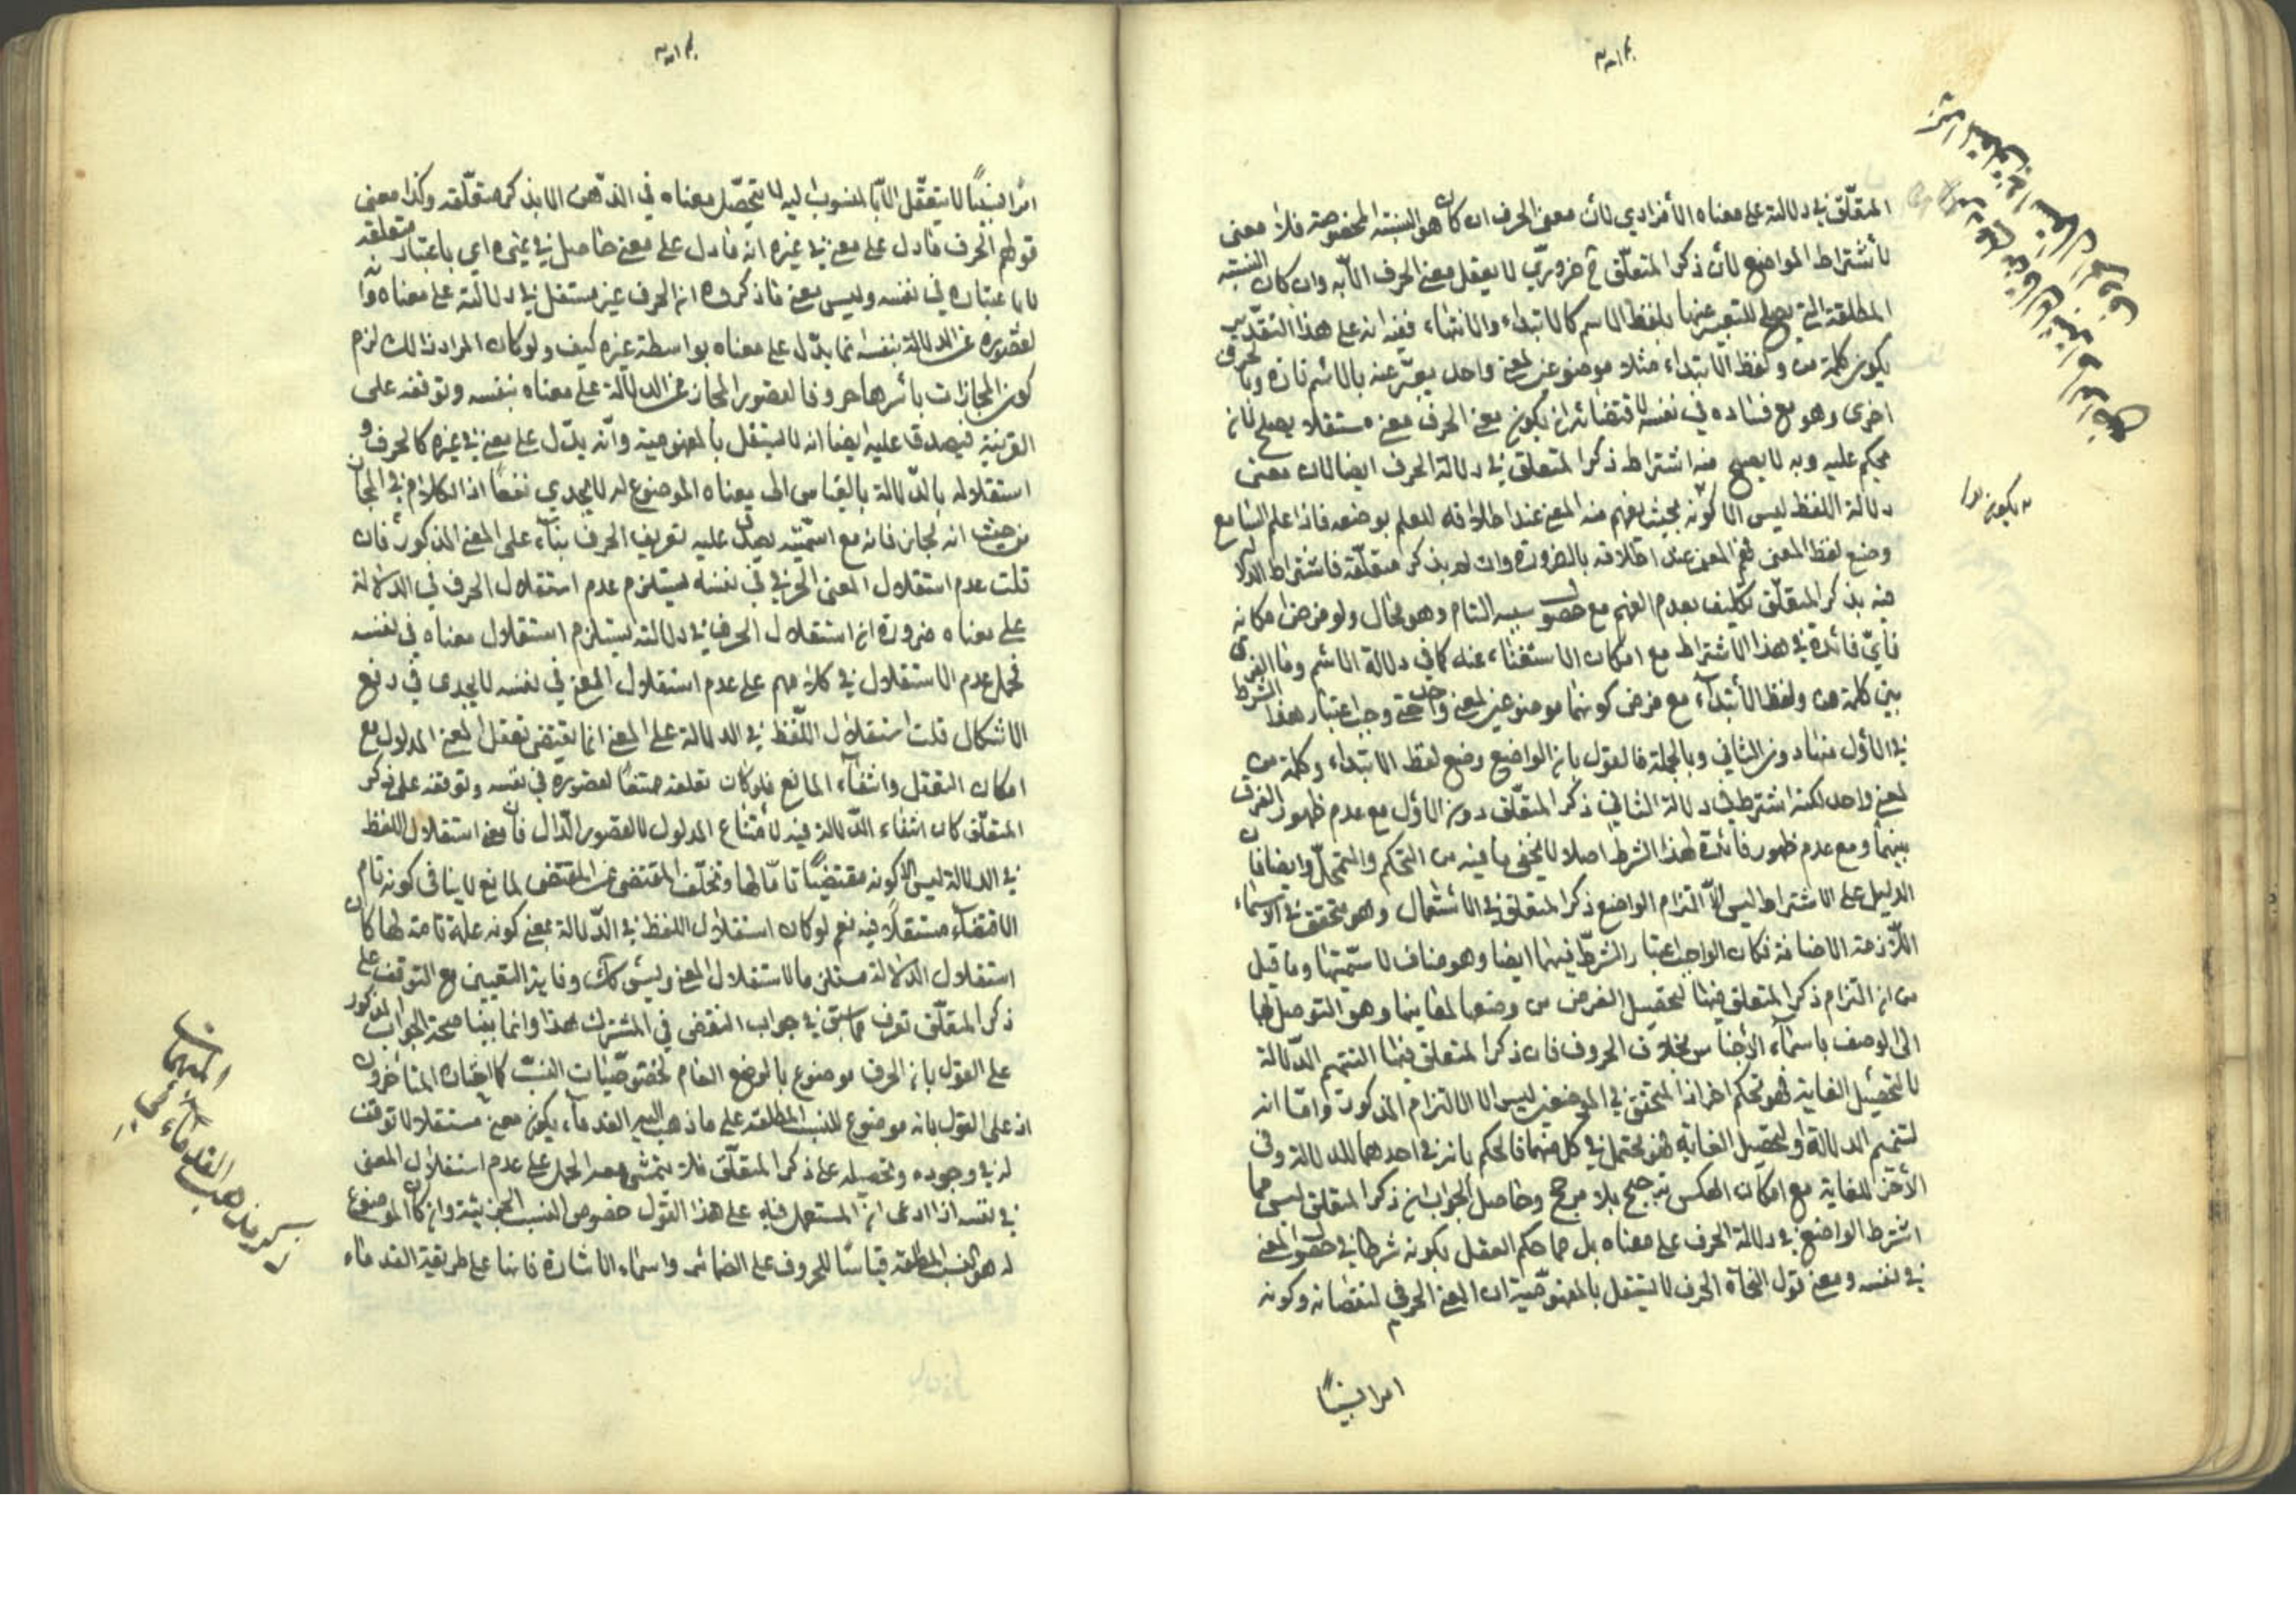 المتعلّق في دلالته على معناه الأفرادي لأن معنى الحرف ان كان هو النسبة المخصوصة فلا معنى
لأشتراط الواضع لأن ذكر المتعلّق ح ضروريّ لا يعقل معنى الحرف الّا به وان كان النسبة
المطلقة التي يصلح للتعبير عنها بلفظ الاسم كالابتداء والانتهاء ففيه انه على هذا التقدير
يكون كلمة من ولفظ الابتداء مثلا موضوعين لمعنى واحد يعبّر عنه بالاسم تارة وبالحرف
اخرى وهو مع فساده في نفسه لاقتضائه ان يكون معنى الحرف معنى مستقلا يصلح لان
يحكم عليه وبه لا يصح منه اشتراط ذكر المتعلق في دلالة الحرف ايضا لان معنى
دلالة اللفظ ليس الا كونه بحيث يفهم منه المعنى عند اطلاقه للعلم بوضعه فاذا علم السامع
وضع لفظ المعنى فهم المعنى عند اطلاقه بالضرورة وان لم يذكر متعلّقه فاشتراط الدلالة
فيه بذكر المتعلّق تكليف بعدم الفهم مع حصول سببه التام وهو محال ولو فرض امكانه
فأيّ فائدة في هذا الاشتراط مع امكان الاستغناء عنه كما في دلالة الاسم وما الفرق
بين كلمة من ولفظ الأبتداء مع فرض كونهما موضوعين لمعنى واحد حتى وجب اعتبار هذا الشرط
في الأول منهما دون الثاني وبالجملة فالقول بان الواضع وضع لفظ الابتداء وكلمة من
لمعنى واحد لكنه اشترط في دلالة الثاني ذكر المتعلّق دون الاوّل مع عدم ظهور الفرق
بينهما ومع عدم ظهور فائدة لهذا الشرط اصلا لا يخفى ما فيه من التحكم والتمحّل وايضا فان
الدليل على الاشتراط ليس الّا التزام الواضع ذكر المتعلق في الأستعمال وهو متحقق في الاسماء
اللّازمة الاضافة فكان الواجب اعتبار الشرط فيهما ايضا وهو مناف لاسميّتها وما قيل
من ان التزام ذكر المتعلق فيها لتحصيل الغرض من وضعها لمعانيها وهو التوصل بها
الى الوصف باسماء الأجناس بخلاف الحروف فان ذكر المتعلق فيها لتتميم الدّلالة
لا لتحصيل الغاية فهو تحكم اخر اذ المتحقق في الموضعين ليس الا الالتزام المذكور وامّا انه
لتتميم الدلالة او لتحصيل الغاية فهو محتمل في كل منهما فالحكم بانه في احدهما للدلالة وفي
الأخر للغاية مع امكان العكس ترجيح بلا مرجح وحاصل الجواب ان ذكر المتعلق ليس مما
اشترط الواضع في دلالة الحرف على معناه بل مما حكم العقل بكونه شرطا في حصول المعنى
في نفسه ومعنى قول النحاة الحرف لا يستقل بالمفهوميّة ان المعنى الحرفي لنقصانه وكونه
امرا نسبيًّا
امرًا نسبيًّا لا يتعقّل الّا بالمنسوب اليه لا يتحصّل معناه في الذّهن الا بذكر متعلّقه وكذا معنى
قولهم الحرف ما دل على معنى في غيره انه ما دل على معنى حاصل في غيره اي باعتبار متعلقه
لا باعتباره في نفسه وليس معنى ما ذكروه ان الحرف غير مستقل في دلالته على معناه وانّ
لقصوره عن الدلالة بنفسه انما يدّل على معناه بواسطة غيره كيف ولو كان المراد ذالك لزم
كون المجازات باسرها حروفا لقصور المجاز عن الدلالة على معناه بنفسه وتوقفه على
القرينة فيصدق عليه ايضا انه لا يستقل بالمفهومية وانّه يدّل على معنى في غيره كالحرف و
استقلاله بالدّلالة بالقياس الى معناه الموضوع له لا يجدي نفعًا اذ الكلام في المجاز
من حيث انه مجاز فانه مع اسميّته يصدق عليه تعريف الحرف بناء على المعنى المذكور فان
قلت عدم استقلال المعنى الحرفي في نفسه يستلزم عدم استقلال الحرف في الدلالة
على معناه ضرورة ان استقلال الحرف في دلالته يستلزم استقلال معناه في نفسه
فحمل عدم الاستقلال في كلامهم على عدم استقلال المعنى في نفسه لا يجدى في دفع
الاشكال قلت استقلال اللّفظ في الدلالة على المعنى انما يقتضي تعقل المعنى المدلول مع
امكان التعقل وانتفاء المانع فلو كان تعلقه ممتنعًا لقصوره في نفسه وتوقفه على ذكر
المتعلّق كان انتفاء الدّلالة فيه لأمتناع المدلول لا لقصور الدّال فان معنى استقلال اللفظ
في الدلالة ليس الا كونه مقتضيًا تامّا لها وتخلّف المقتضى عن المقتضى لمانع لا ينافى كونه تام
الاقتضاء مستقلًا فيه نعم لو كان استقلال اللفظ في الدّلالة بمعنى كونه علة تامة لها كان
استقلال الدلالة مستلزما لاستقلال المعنى وليس كك وفايدة التعيين مع التوقف على
ذكر المتعلّق تعرف مما سبق في جواب النقض في المشترك هذا وانما بينا صحة الجواب المذكور
على القول بان الحرف موضوع بالوضع العام لخصوصيّات النسب كما اختاره المتأخرون
اذ على القول بانه موضوع للنسب المطلقة على ما ذهب اليه القدماء يكون معنى مستقلا لا توقف
له في وجوده وتحصيله على ذكر المتعلّق فلا يتمشى معه الحمل على عدم استقلال المعنى
في نفسه اذا ادعى ان المستعمل فيه على هذا القول خصوص النسب الجزئية وان كان الموضوع
له هو النسب المطلقة قياسًا للحروف على الضمائر واسماء الاشارة فانها على طريقة القدماء
ذكر مذهب القدماء في
المبهمات